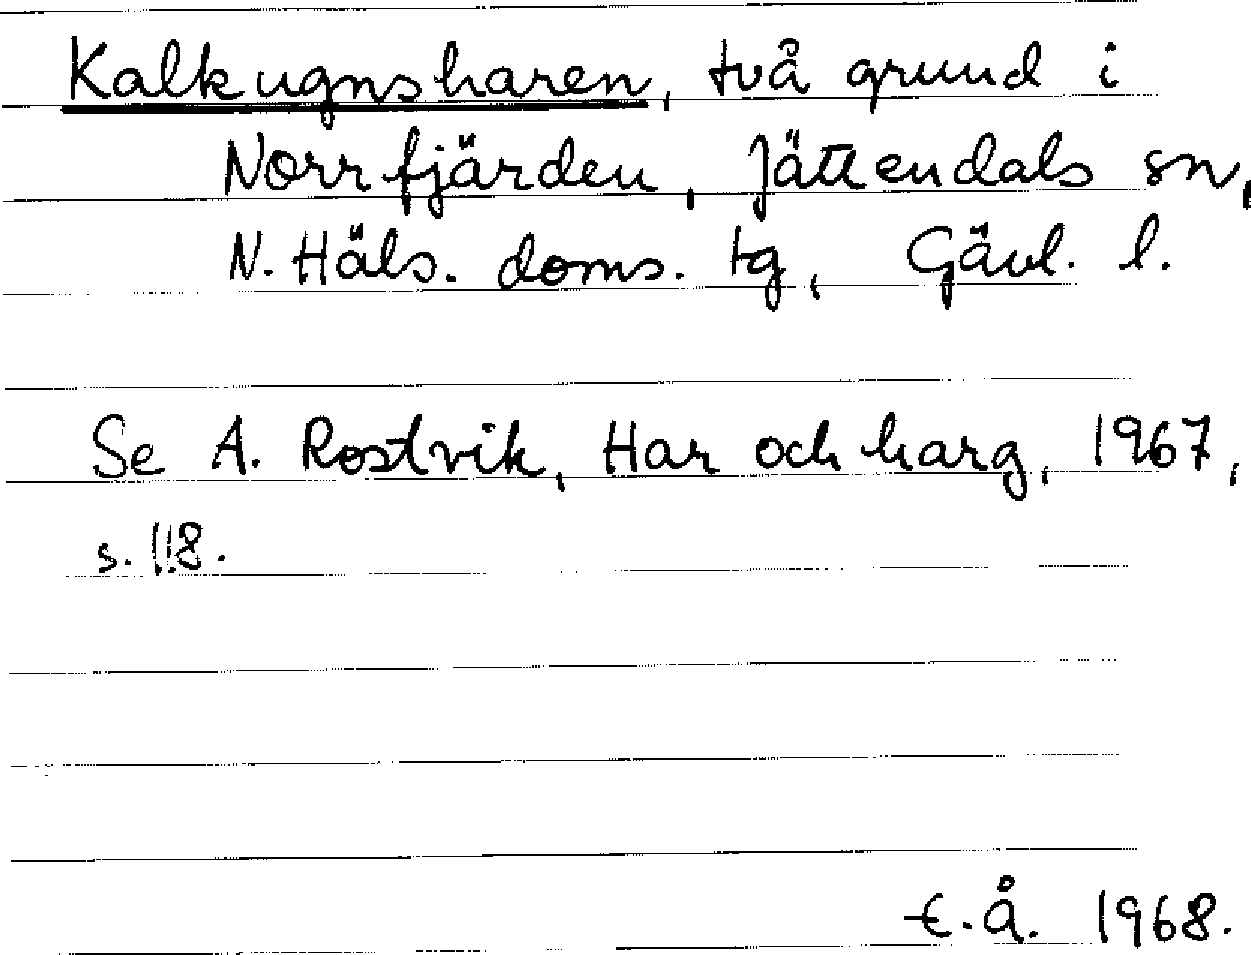 Kalkugnsharen, två grund i
Norrfjärden, Jättendals sn,
N. Häls. doms. tg, Gävl. l.
Se A. Rostvik, Har och harg, 1967,
s. 118.
E.Å. 1968.